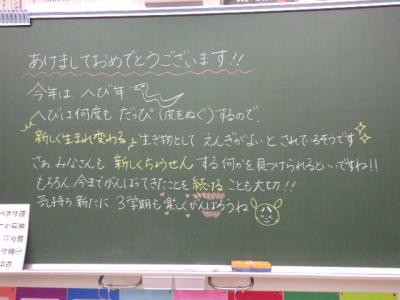 あけましておめでとうございます!!
今年は、へび年
へびは何度も だっぴ(皮をぬぐ)するので、
新しく生まれ変わる 生き物として えんぎがよいと されているそうです
さぁ みなさんも 新しくちょうせん する何かを見つけられるといいですね!!
もちろん、今までがんばってきたことを 続ける ことも大切!!
気持ち新たに 3学期も 楽しくがんばろうね